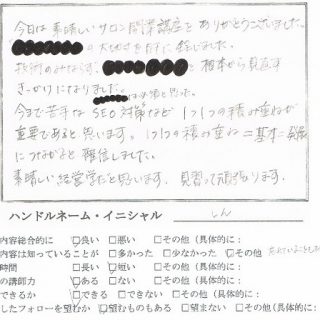 今日は素晴しいサロン開業講座をありがとうございました。
の大切さを身に
技術のみならず、 と根本から見直す
きっかけになりました。
は必須と思った。
今まで苦手なSEO対策など1つ1つの積み重ねが
重要であると思います。1つ1つの積み重ね=基本
につながると確信しました。
素晴しい経営学だと思います。見習って頑張ります。
ハンドルネーム・イニシャル しん
内容総合的に □良い □悪い □その他（具体的に：
内容は知っていることが □多かった □少なかった □その他
時間 □長い □短い □その他（具体的に：
の講師力 □ある □ない □その他（具体的に：
できるか □できる □できない □その他（具体的に：
したフォローを望むか □望むものもある □望まない □その他（具体的に：